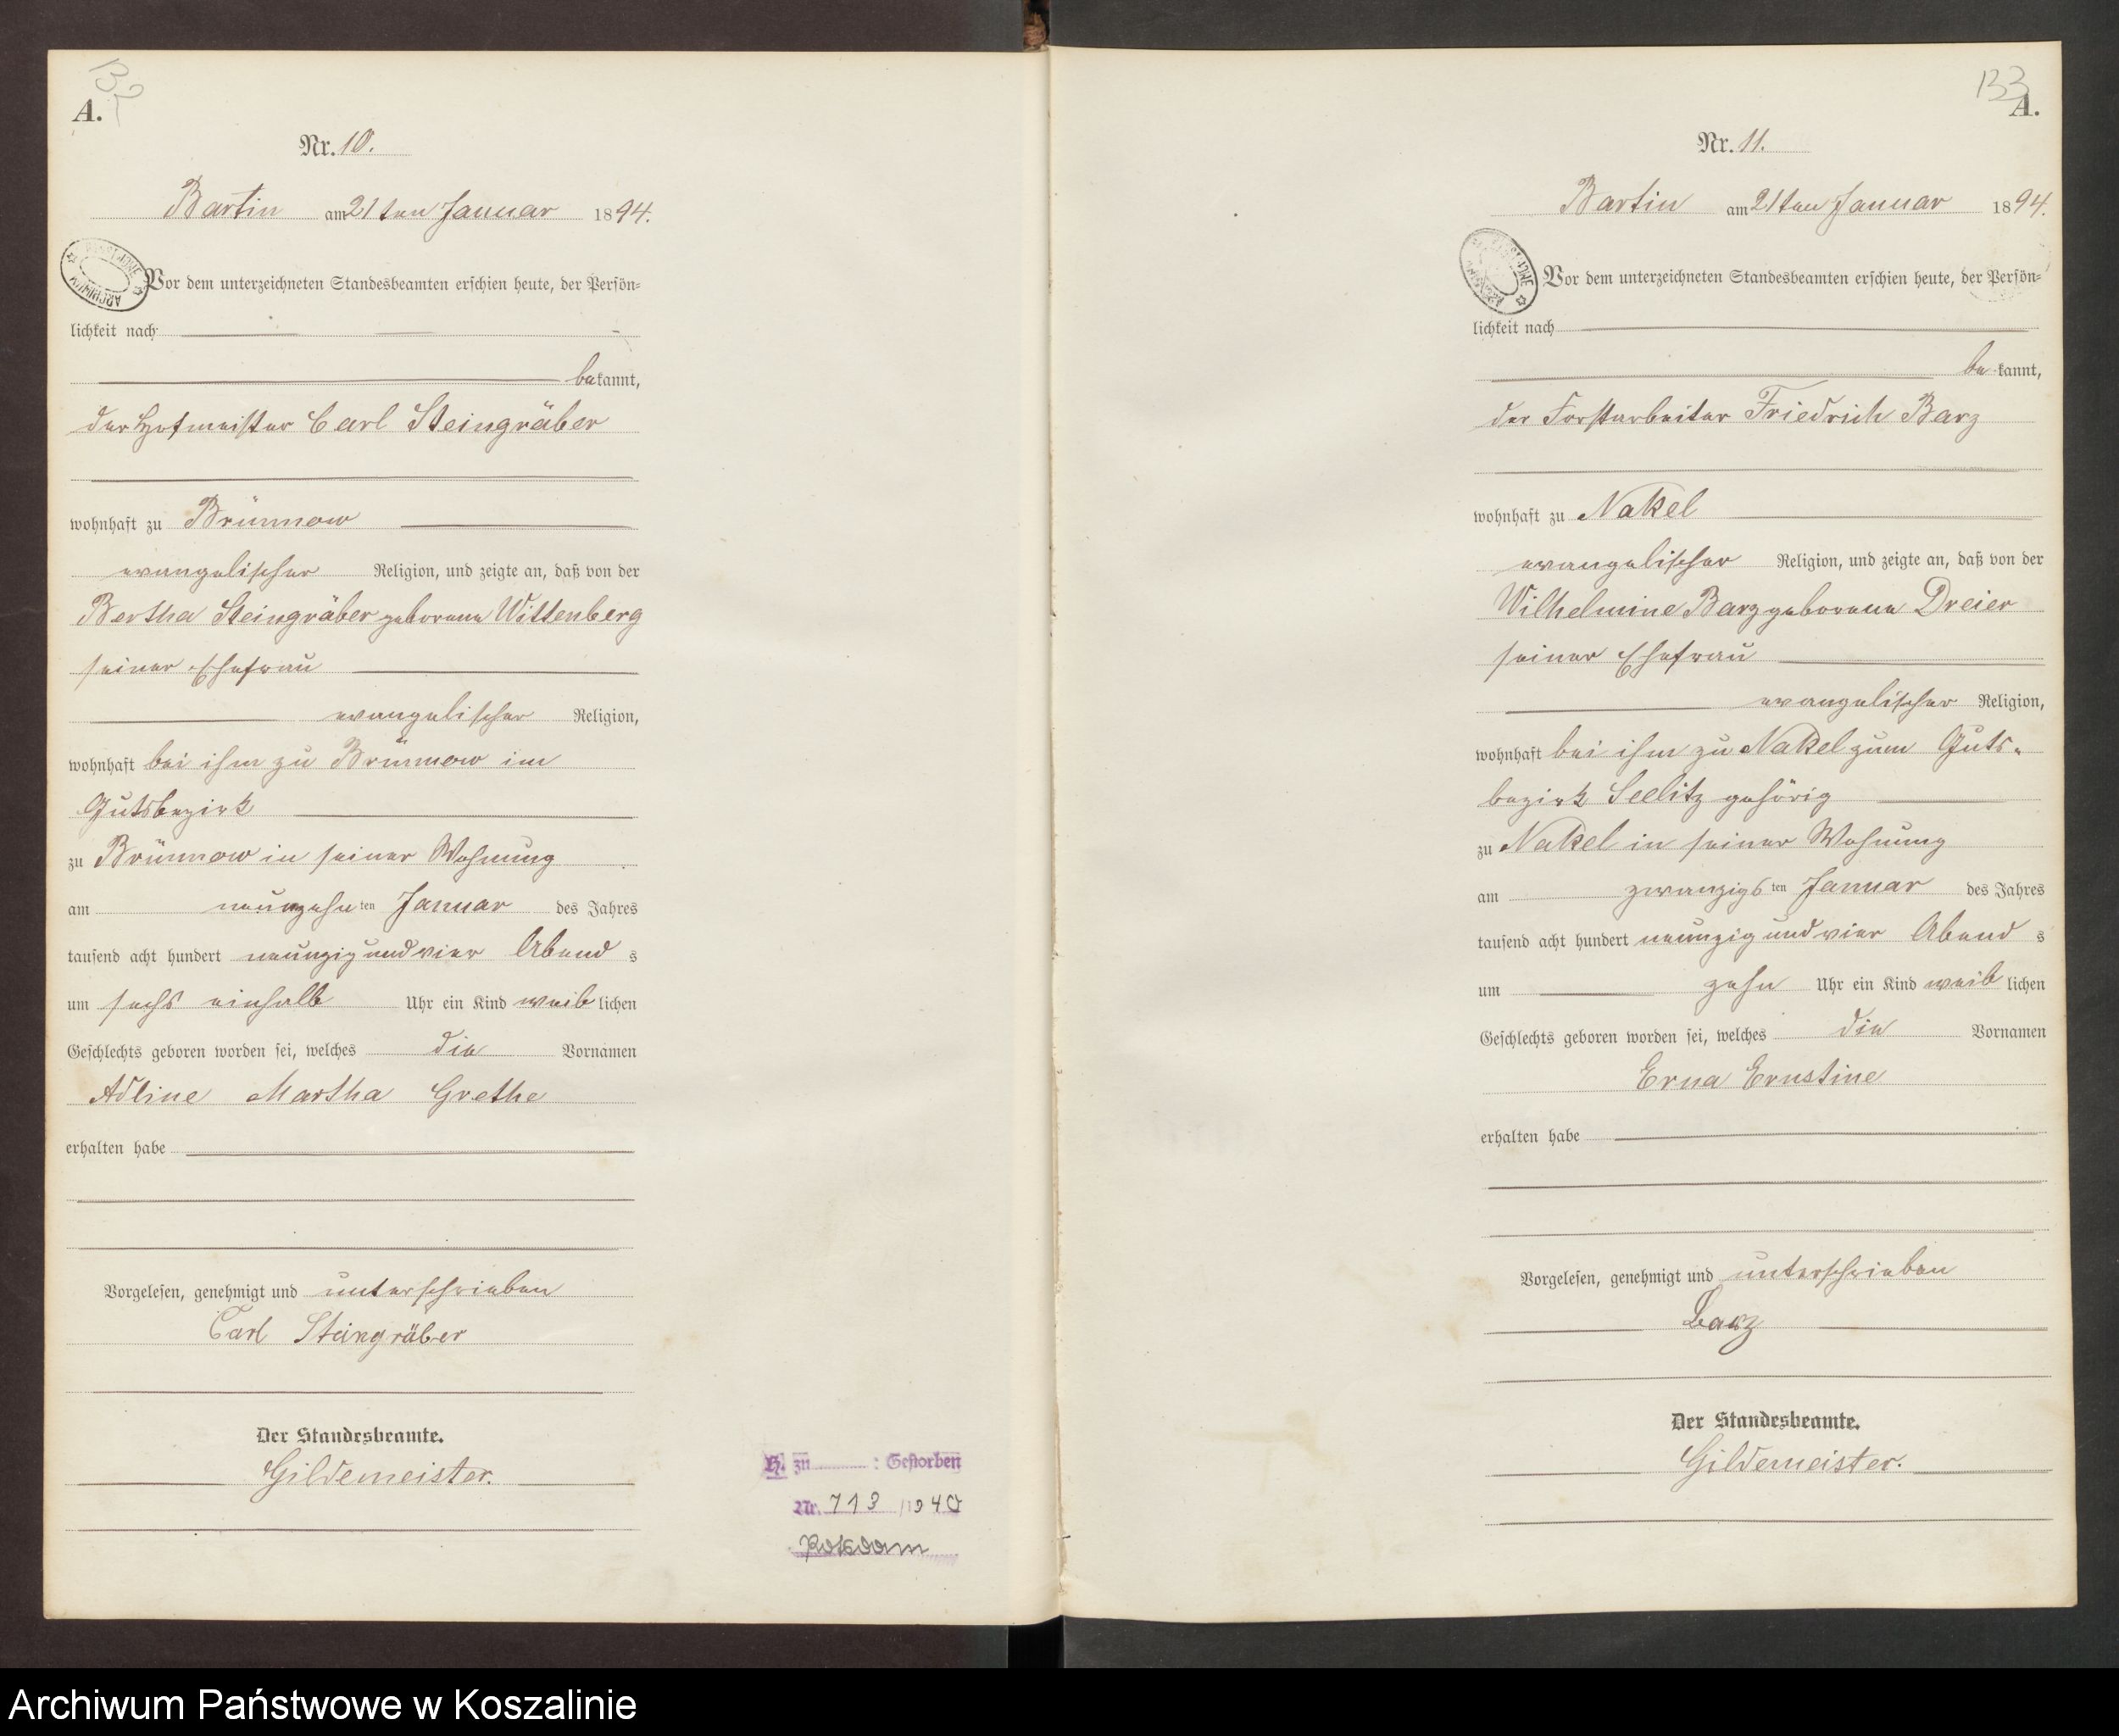 132
A.
Nr. 10.
Bartin am 21ten Januar 1894.
Vor dem unterzeichneten Standesbeamten erschien heute, der Persön-
lichkeit nach
bekannt,
der Hofmeister Carl Steingräber
wohnhaft zu Brünnow
evangelischer Religion, und zeigte an, daß von der
Bertha Steingräber geborene Wittenberg
seiner Ehefrau
evangelischer Religion,
wohnhaft bei ihm zu Brünnow im
Gutsbezirk
zu Brünnow in seiner Wohnung
am neunzehnten Januar des Jahres
tausend acht hundert neunzig und vier Abends
um sechs einhalb Uhr ein Kind weiblichen
Geschlechts geboren worden sei, welches die Vornamen
Adline Martha Grethe
erhalten habe
Vorgelesen, genehmigt und unterschrieben
Carl Steingräber
Der Standesbeamte.
Gildemeister.
H. zu : Gestorben
Nr. 713 /1940
Potsdam
133
A.
Nr. 11.
Bartin am 21ten Januar 1894.
Vor dem unterzeichneten Standesbeamten erschien heute, der Persön-
lichkeit nach
bekannt,
der Forstarbeiter Friedrich Barz
wohnhaft zu Nakel
evangelischer Religion, und zeigte an, daß von der
Wilhelmine Barz geborene Dreier
seiner Ehefrau
evangelischer Religion,
wohnhaft bei ihm zu Nakel zum Guts-
bezirk Seelitz gehörig
zu Nakel in seiner Wohnung
am zwanzigsten Januar des Jahres
tausend acht hundert neunzig und vier Abends
um zehn Uhr ein Kind weiblichen
Geschlechts geboren worden sei, welches die Vornamen
Erna Ernstine
erhalten habe
Vorgelesen, genehmigt und unterschrieben
Barz
Der Standesbeamte.
Gildemeister.
Archiwum Państwowe w Koszalinie